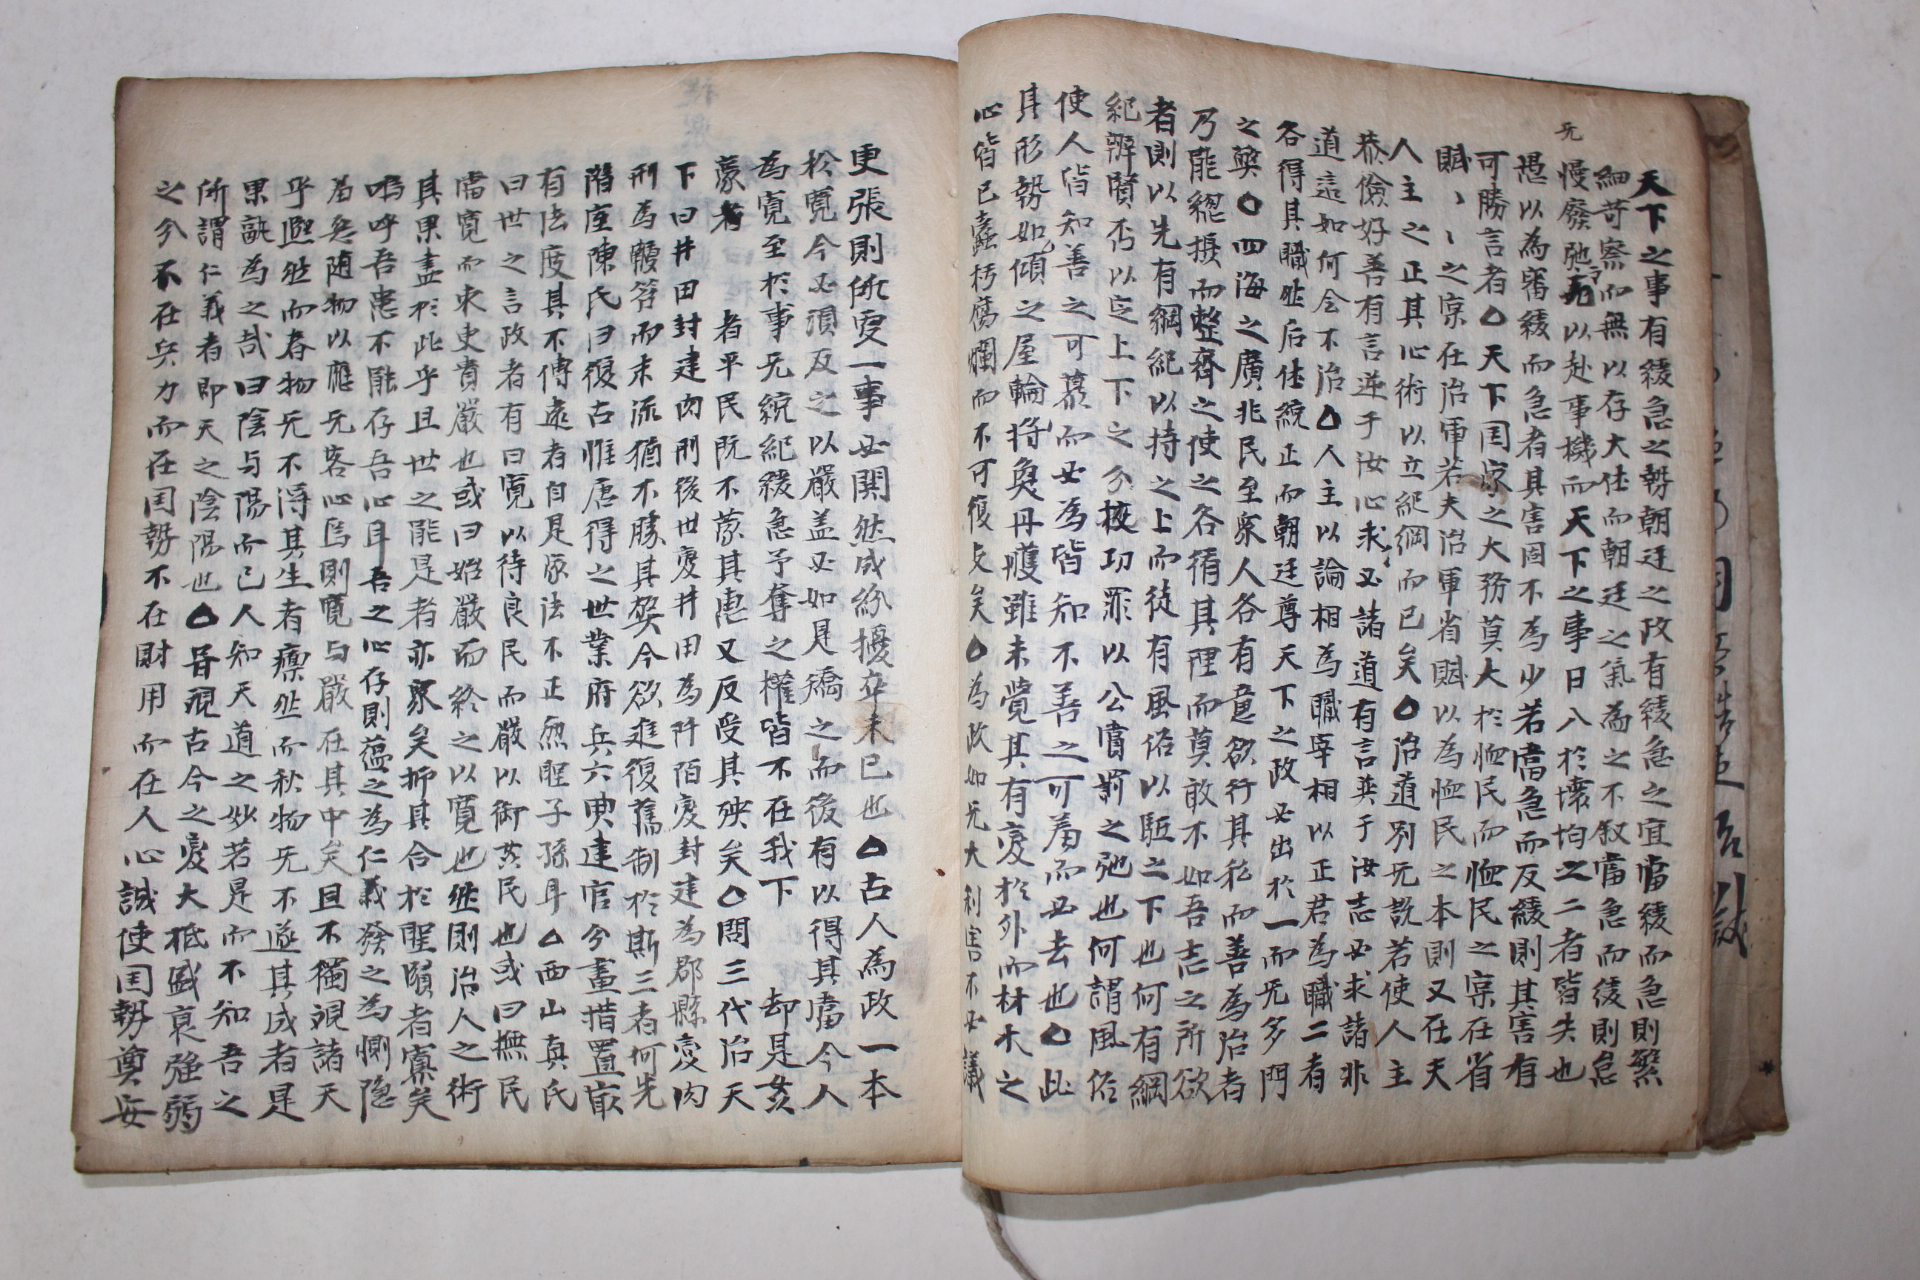 天下之事有緩急之勢朝廷之政有緩急之宜當緩而急則繁
細苛察而無以存大体而朝廷之氣為之不叙當急而緩則怠
无
慢廢弛以赴事機而天下之事日入於壞均之二者皆失也
愚以為當緩而急者其害固不為少若當急而反緩則其害有
可勝言者△天下国家之大務莫大於恤民而恤民之宲在省
賦丶丶之宲在治軍若夫治軍省賦以為恤民之本則又在夫
人主之正其心術以立紀綱而已矣△治道別无説若使人主
恭儉好善有言逆于汝心求又諸道有言巽于汝志必求諸非
道這如何会不治△人主以論相為職宰相以正君為職二者
各得其職然后体統正而朝廷尊天下之政必出於一而无多門
之弊△四海之廣兆民至衆人各有意欲行其私而善為治者
乃能緫攝而整齊之使之各循其理而莫敢不如吾志之所欲
者則以先有綱紀以持之上而後有風俗以駈之下也何有綱
紀辨賢否以定上下之分核功罪以公賞罰之弛也何謂風俗
使人皆知善之可慕而必為皆知不善之可羞而必去也△此
其形勢如傾之屋輪将奐丹雘雖未覺其有変於外而材木之
心皆已蠹朽腐爛而不可復支矣△為政如无大利害不必議
更張則所更一事必閧然成紛擾卒未已也△古人為政一本
於寬今必須反之以嚴盖必如是矯之而後有以得其當今人
為寬至於事无統紀緩急予奪之權皆不在我下 却是姦
豪者 者平民既不蒙其惠又反受其殃矣△問三代治天
下曰井田封建肉刑後世変井田為阡陌変封建為郡縣変肉
刑為鞭笞而末流猶不勝其弊今欲進復舊制於斯三者何先
潛庵陳氏曰復古惟唐得之世業府兵六典建官今畫措置最
有法度其不傳遠者自是家法不正忽聖子孫耳△西山真氏
曰世之言政者有曰寬以待良民而嚴以御姦民也或曰撫民
當寬而束吏貴嚴也或曰始嚴而終之以寬也然則治人之術
其果盡於此乎且世之能是者亦衆矣抑其合於聖賢者寡矣
嗚呼吾患不能存吾心耳吾之心存則蘊之為仁義發之為惻隐
羞矣随物以應无容心焉則寬与嚴在其中矣且不獨視諸天
乎凞然而春物无不得其生者凛然而秋物无不遂其成者是
果孰為之哉曰陰与陽而已人知天道之妙若是而不知吾之
所謂仁義者即天之陰陽也△昔視古今之変大抵盛衰強弱
之分不在兵力而在国勢不在財用而在人心誠使国勢奠安